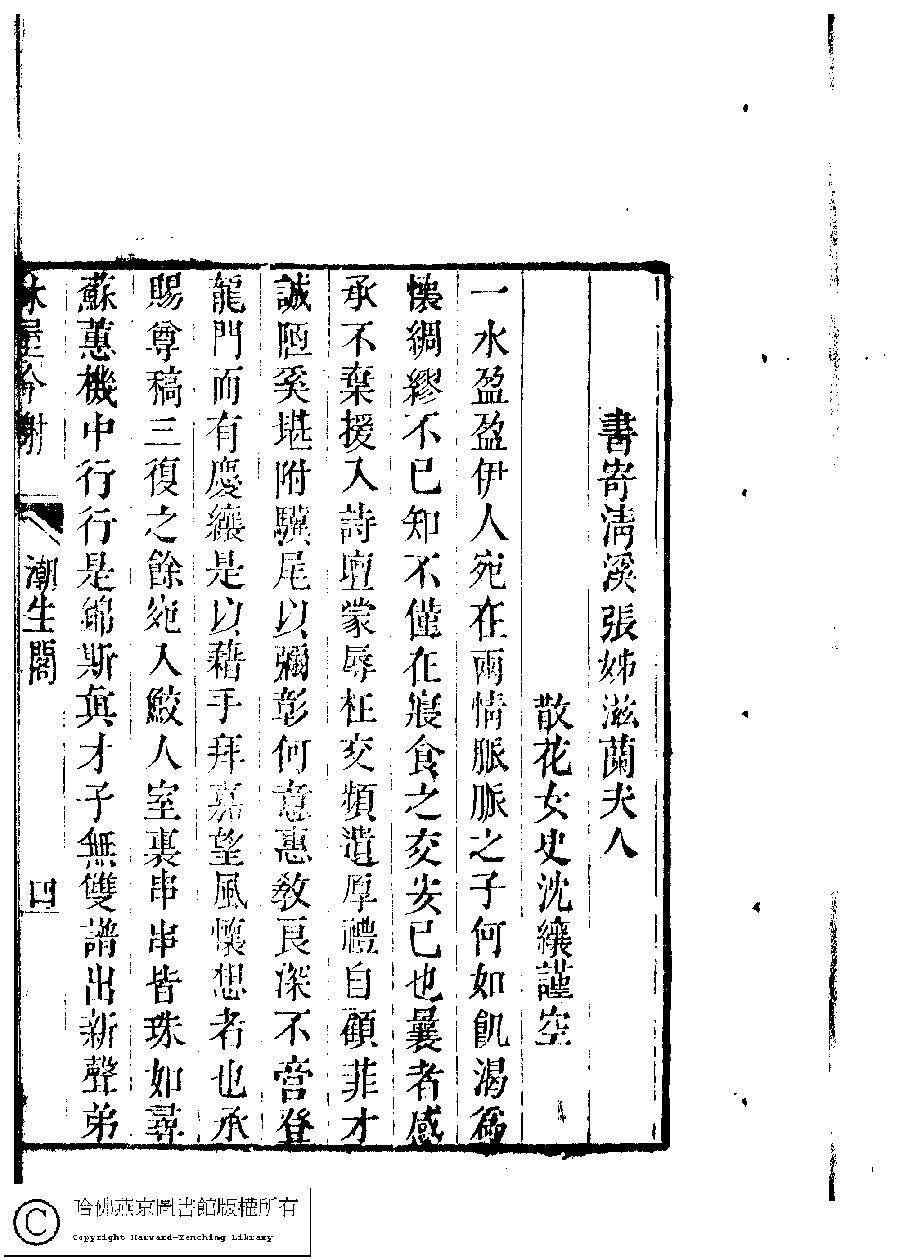 書寄清溪張姊滋蘭夫人
散花女史沈纕謹空
一水盈盈伊人宛在兩情脈脈之子何如飢渴爲
懷綢繆不已知不僅在寢食之交安已也曩者感
承不棄援入詩壇蒙辱枉交頻遺厚禮自顧菲才
誠陋奚堪附驥尾以彌彰何意惠敎良深不啻登
龍門而有慶纕是以藉手拜嘉望風懷想者也承
賜尊稿三復之餘宛入鮫人室裏串串皆珠如尋
蘇蕙機中行行是錦斯眞才子無雙譜出新聲弟
潮生閣
四
哈佛燕京圖書館版權所有
Copyright Harvard-Yenching Library